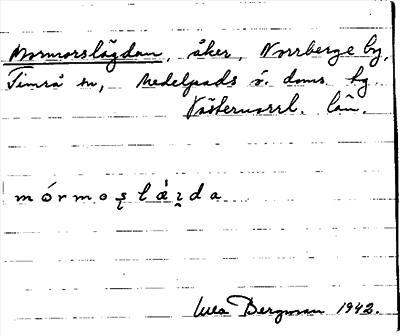 Mormorslägdan, åker, Norrberge by,
Timrå sn, Medelpads ö. doms. hg
Västernorrl. län.
mórmoşlǽʐda
Ulla Bergman 1942.